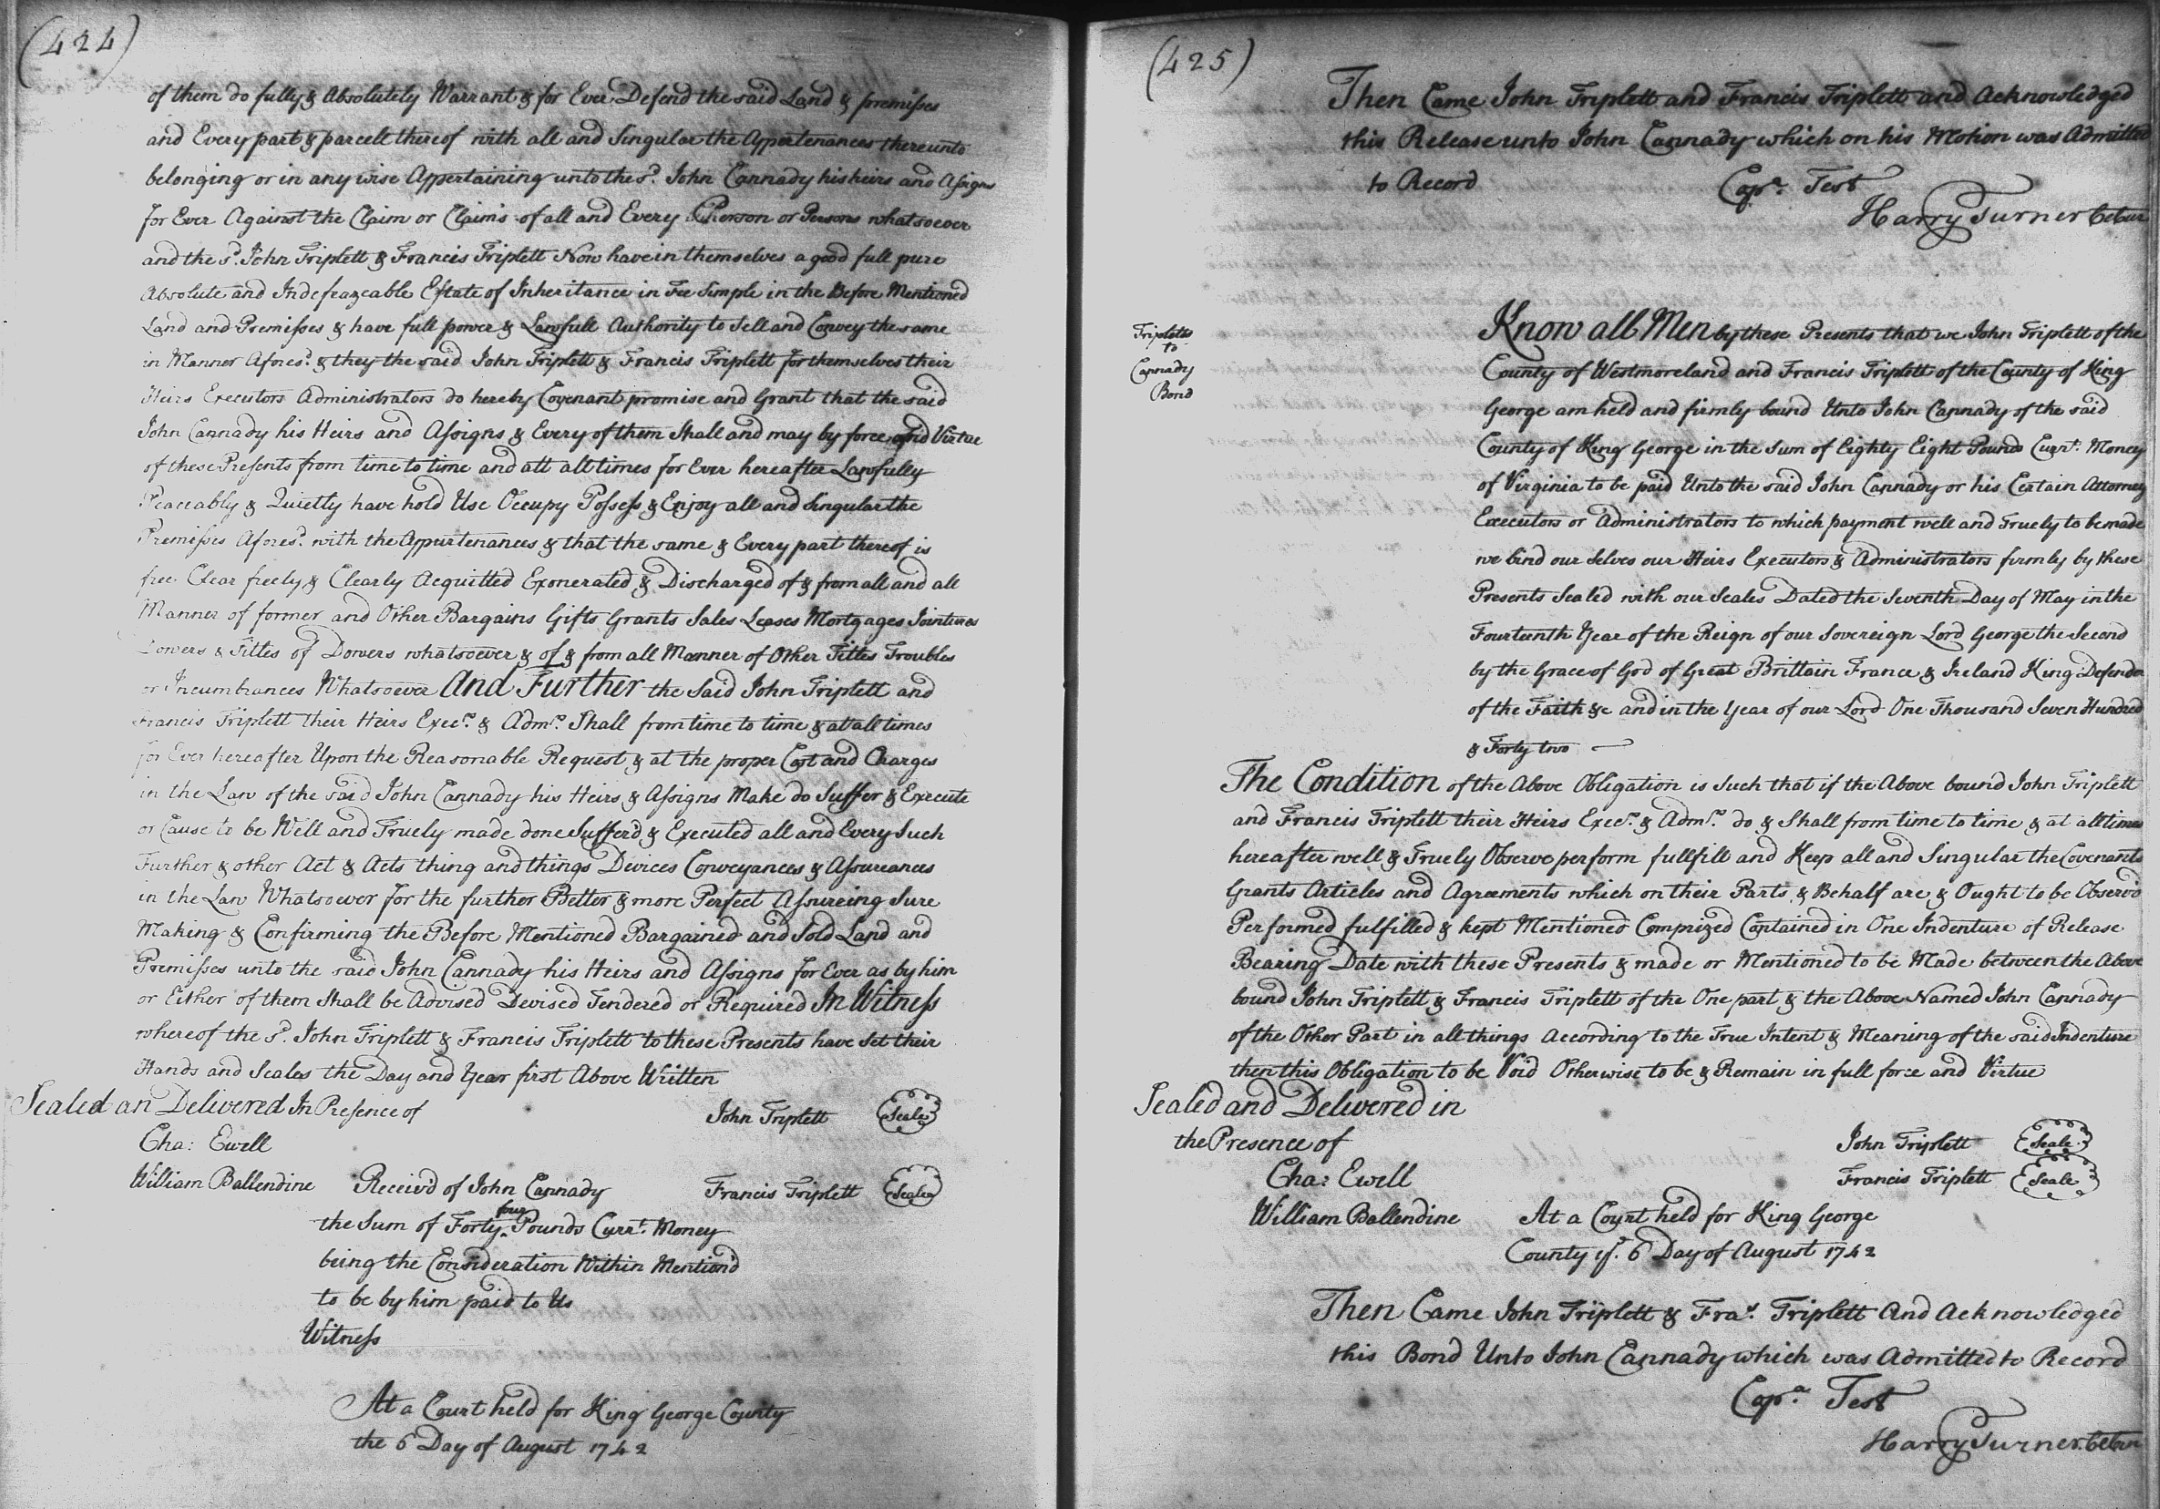 (424)
of them do fully & Absolutely Warrant & for Ever Defend the said Land & premisses
and Every part & parcell thereof with all and Singular the Appertenances thereunto
belonging or in any wise Appertaining unto the sd. John Cannady his heirs and Assigns
for Ever Against the Claim or Claims of all and Every Person or Persons whatsoever
and the sd. John Triplett & Francis Triplett Now have in themselves a good full pure
Absolute and Indefeazeable Estate of Inheritance in Fee Simple in the Before Mentioned
Land and Premisses & have full power & Lawfull Authority to Sell and Convey the same
in Manner Aforesd. & they the said John Triplett & Francis Triplett for themselves their
Heirs Executors Administrators do hereby Covenant promise and Grant that the said
John Cannady his Heirs and Assigns & Every of them Shall and may by force and Virtue
of these Presents from time to time and att all times for Ever hereafter Lawfully
Peaceably & Quietly have hold Use Occupy Possess & Enjoy all and Singular the
Premisses Aforesd. with the Appurtenances & that the same & Every part thereof is
free Clear freely & Clearly Acquitted Exonerated & Discharged of & from all and all
Manner of former and Other Bargains Gifts Grants Sales Leases Mortgages Jointures
Dowers & Titles of Dowers whatsoever & of & from all Manner of Other Titles Troubles
or Incumbrances Whatsoever And Further the Said John Triplett and
Francis Triplett their Heirs Execrs. & Admrs. Shall from time to time & at all times
for Ever hereafter Upon the Reasonable Request & at the proper Cost and Charges
in the Law of the said John Cannady his Heirs & Assigns Make do Suffer & Execute
or Cause to be Well and Truely made done Sufferd & Executed all and Every Such
Further & other Act & Acts thing and things Divices Conveyances & Assureances
in the Law Whatsoever for the further Better & more Perfect Assureing Sure
Making & Confirming the Before Mentioned Bargained and Sold Land and
Premisses unto the said John Cannady his Heirs and Assigns for Ever as by him
or Either of them Shall be Advised Devised Tendered or Required In Witness
whereof the sd. John Triplett & Francis Triplett to these Presents have Set their
Hands and Seales the Day and Year first Above Written
Sealed an Delivered In Presence of John Triplett Seale
Cha: Ewell
William Ballendine Receiv'd of John Cannady Francis Triplett Seale
the Sum of Forty four Pounds Currt. Money
being the Consideration Within Mention'd
to be by him paid to Us
Witness
At a Court held for King George County
the 6 Day of August 1742
(425)
Then Came John Triplett and Francis Triplett and Acknowledged
this Release unto John Cannady which on his Motion was Admitted
to Record Copa. Test
Harry Turner
Tripletts
to
Cannady
Bond
Know all Men by these Presents that we John Triplett of the
County of Westmoreland and Francis Triplett of the County of King
George am held and firmly bound Unto John Cannady of the said
County of King George in the Sum of Eighty Eight Pounds Currt. Money
of Virginia to be paid Unto the said John Cannady or his Certain Attorney
Executors or Administrators to which payment well and Truely to be made
we bind our Selves our Heirs Executors & Administrators firmly by these
Presents Sealed with our Seales Dated the Seventh Day of May in the
Fourteenth Year of the Reign of our Sovereign Lord George the Second
by the Grace of God of Great Brittain France & Ireland King Defender
of the Faith &c and in the Year of our Lord One Thousand Seven Hundred
& Forty two
The Condition of the Above Obligation is Such that if the Above bound John Triplett
and Francis Triplett their Heirs Execrs. & Admrs. do & Shall from time to time & at all times
hereafter well & Truely Observe perform fullfill and Keep all and Singular the Covenants
Grants Articles and Agreements which on their Parts & Behalf are & Ought to be Observ'd
Performed fulfilled & kept Mentioned Comprized Contained in One Indenture of Release
Bearing Date with these Presents & made or Mentioned to be Made between the Above
bound John Triplett & Francis Triplett of the One part & the Above Named John Cannady
of the Other Part in all things According to the True Intent & Meaning of the said Indenture
then this Obligation to be Void Otherwise to be & Remain in full force and Virtue
Sealed and Delivered in
the Presence of John Triplett Seale
Cha: Ewell Francis Triplett Seale
William Ballendine At a Court held for King George
County ye. 6 Day of August 1742
Then Came John Triplett & Fras. Triplett And Acknowledged
this Bond Unto John Cannady which was Admitted to Record
Copa. Test
Harry Turner